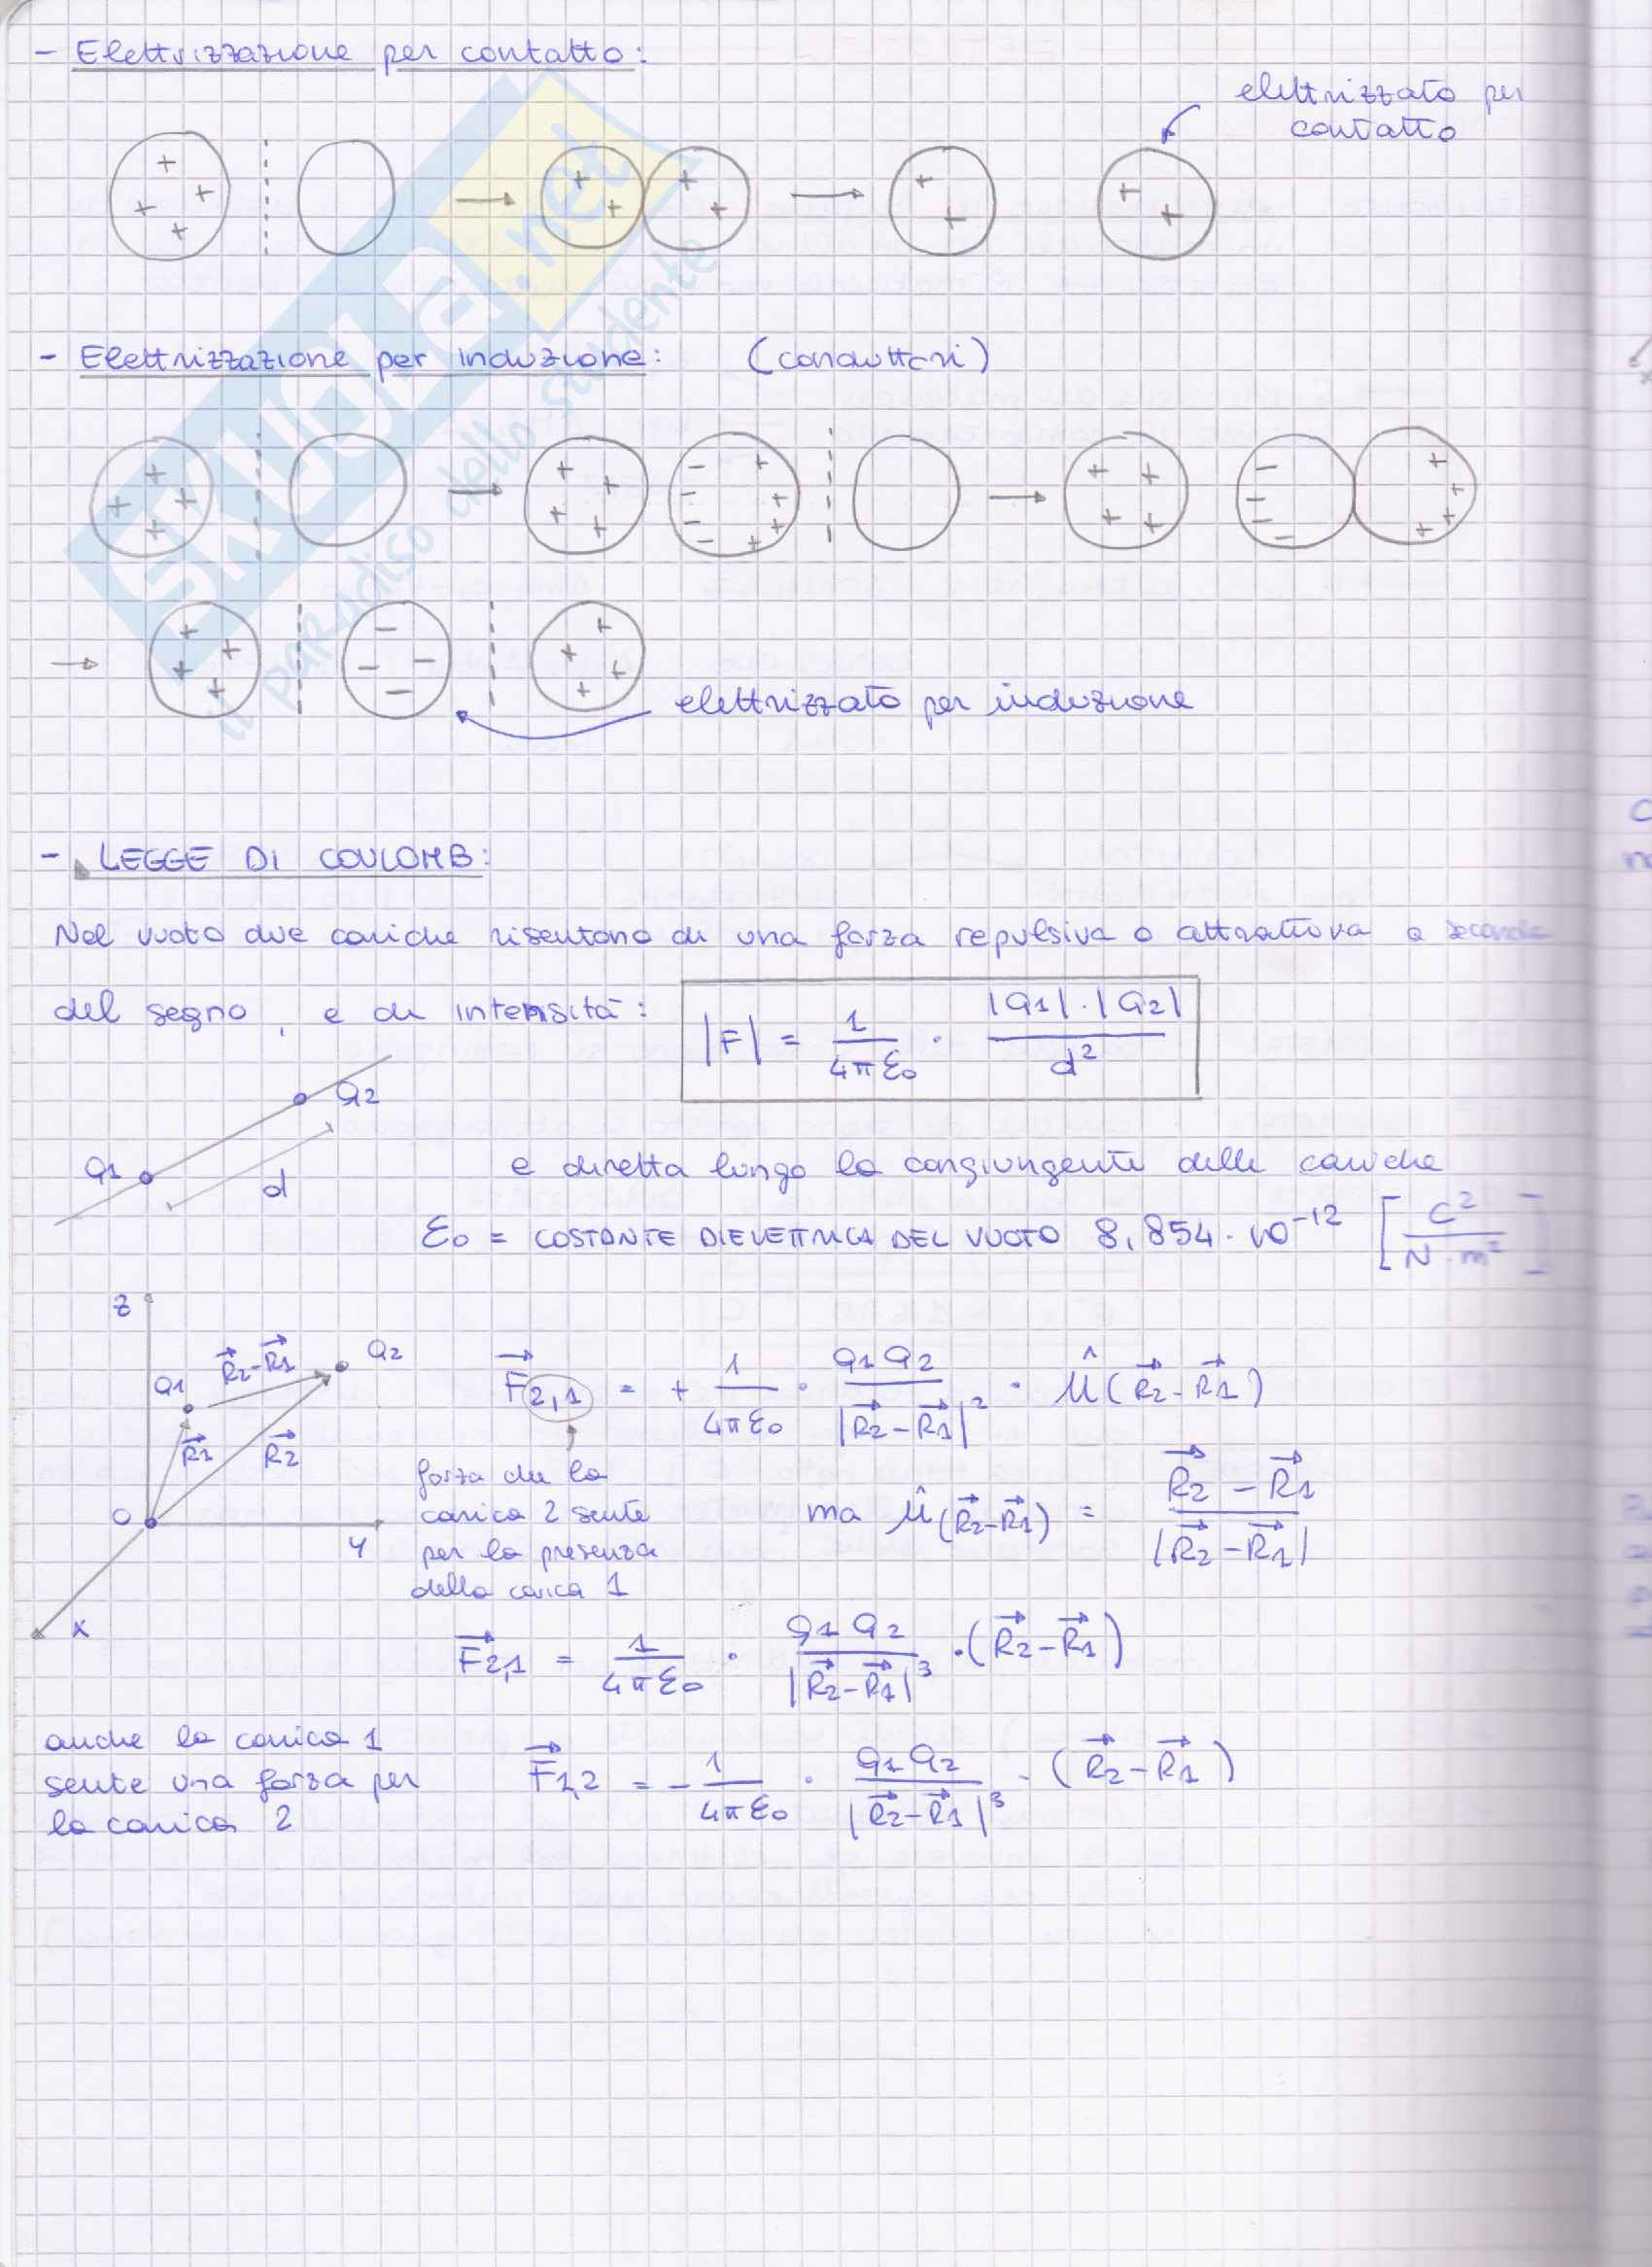 - Elettrizzazione per contatto:
elettrizzato per
contatto
- Elettrizzazione per induzione: (conduttori)
elettrizzato per induzione
- LEGGE DI COULOMB:
Nel vuoto due cariche risentono di una forza repulsiva o attrattiva a seconda
del segno, e di intensità: |F| = 1/(4πε0) · |q1|·|q2|/d²
q2
q1
d
e diretta lungo la congiungente delle cariche
ε0 = COSTANTE DIELETTRICA DEL VUOTO 8,854 · 10⁻¹² [C²/(N·m²)]
z
q1
R⃗2-R⃗1
q2
R⃗1
R⃗2
O
y
x
F⃗2,1 = + 1/(4πε0) · q1q2/|R⃗2-R⃗1|² · û(R⃗2-R⃗1)
forza che la
carica 2 sente
per la presenza
della carica 1
ma û(R⃗2-R⃗1) = (R⃗2-R⃗1)/|R⃗2-R⃗1|
F⃗2,1 = 1/(4πε0) · q1q2/|R⃗2-R⃗1|³ · (R⃗2-R⃗1)
anche la carica 1
sente una forza per
la carica 2
F⃗1,2 = - 1/(4πε0) · q1q2/|R⃗2-R⃗1|³ · (R⃗2-R⃗1)
SKUOLA.net
il paradiso dello studente